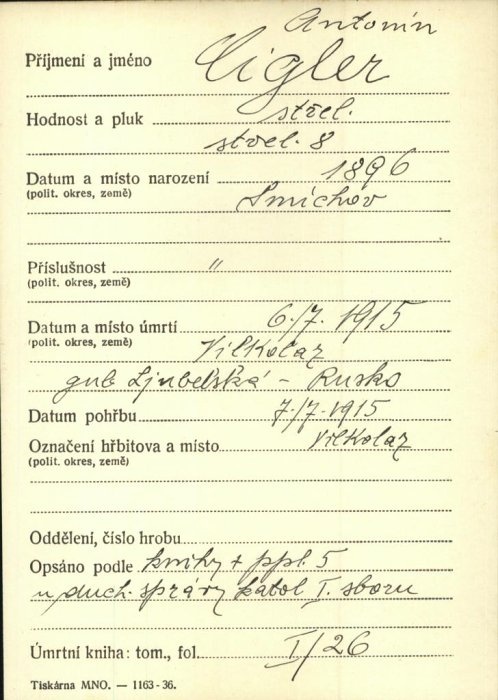 Antonín
Příjmení a jméno Cigler
Hodnost a pluk střel.
střel. 8
Datum a místo narození 1896
(polit. okres, země) Smíchov
Příslušnost "
(polit. okres, země)
Datum a místo úmrtí 6./7. 1915
(polit. okres, země) Vilkolaz
gub Ljubelská - Rusko
Datum pohřbu 7./7. 1915
Označení hřbitova a místo Vilkolaz
(polit. okres, země)
Oddělení, číslo hrobu
Opsáno podle knihy + ppl. 5
u duch. správy katol I. sboru
Úmrtní kniha: tom., fol. I/26
Tiskárna MNO. — 1163-36.